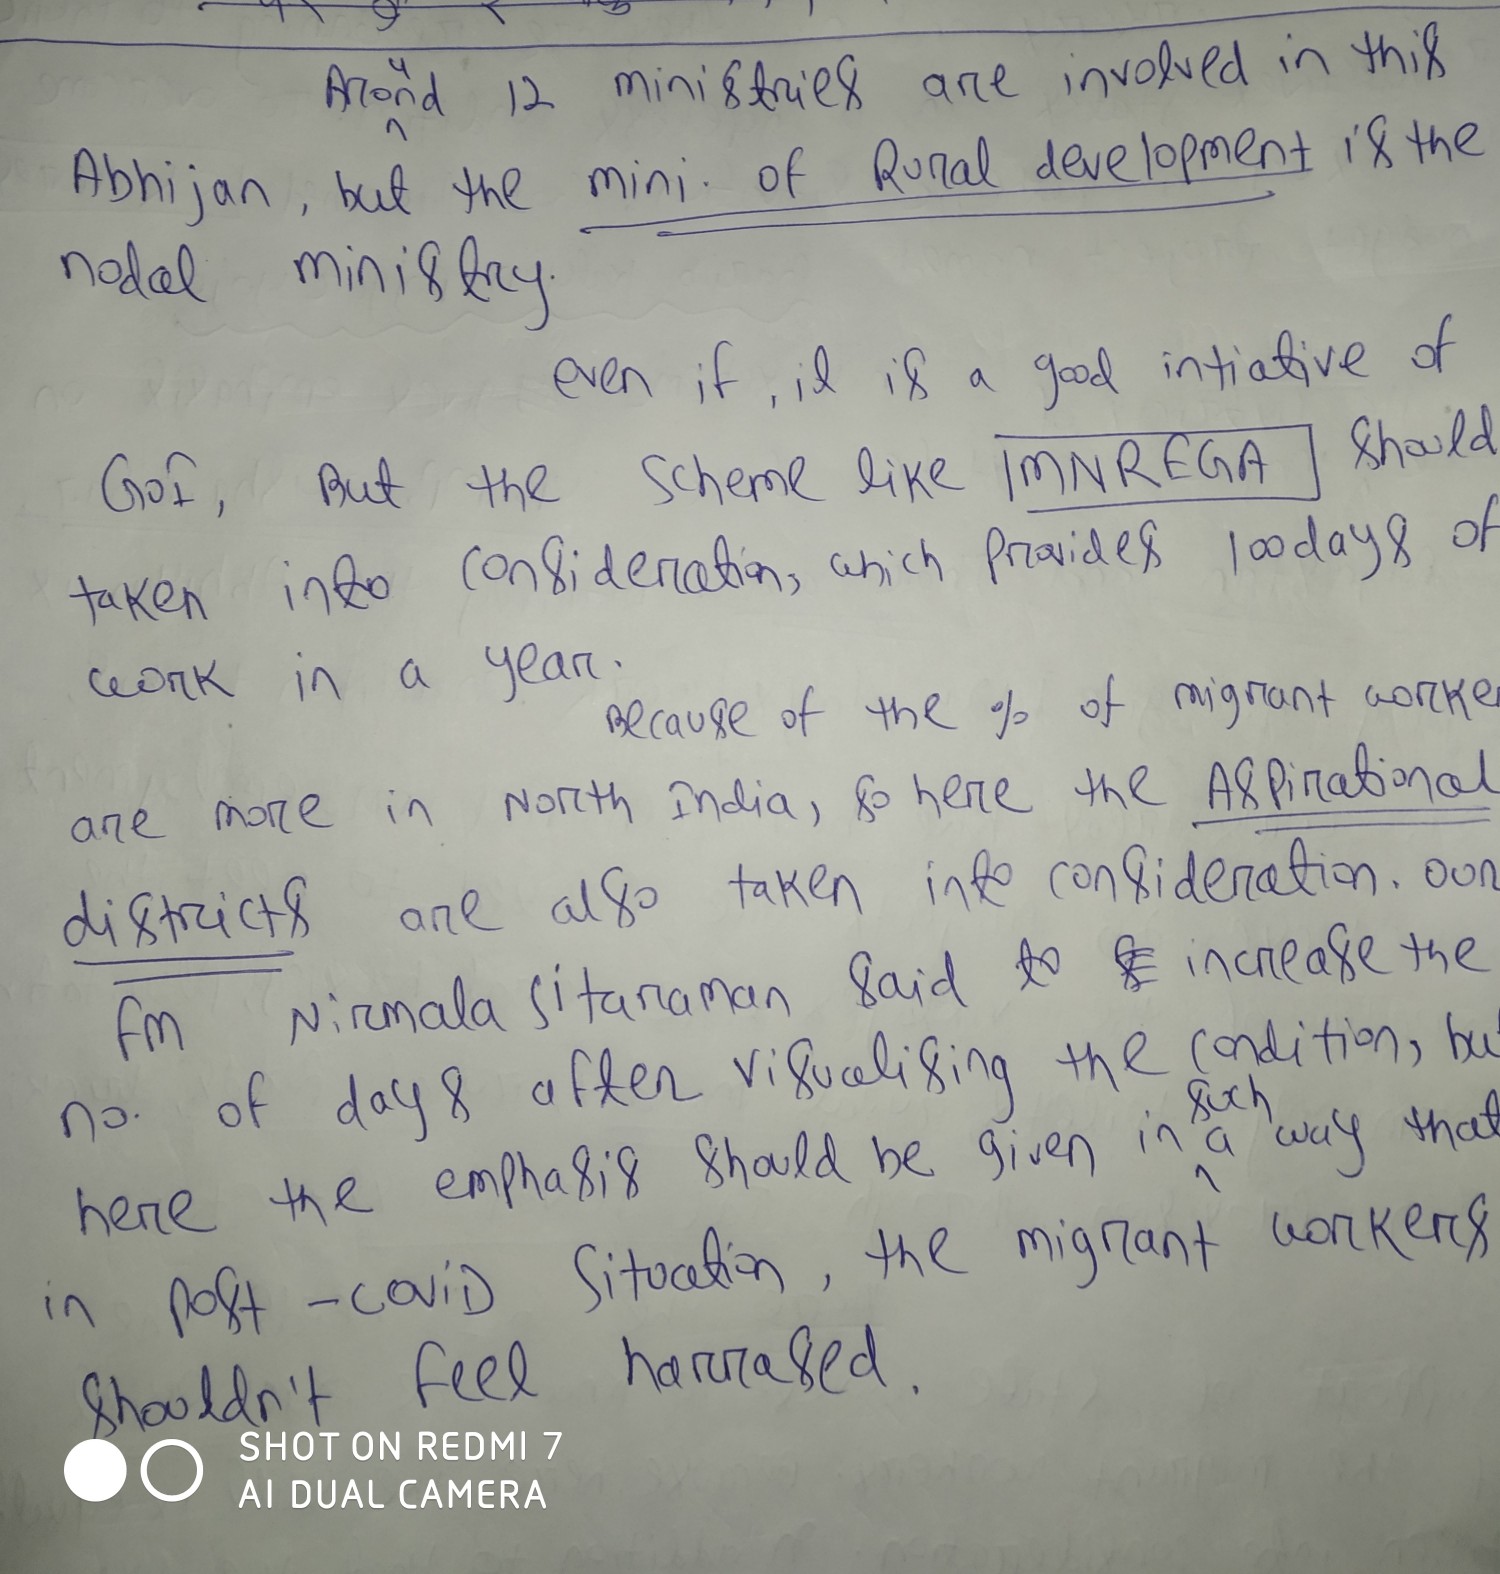 Around 12 ministries are involved in this
Abhijan, but the mini. of Rural development is the
nodal ministry.
even if, it is a good intiative of
GoI, But the scheme like MNREGA should
taken into consideration, which provides 100days of
work in a year.
Because of the % of migrant worker
are more in North India, so here the Aspirational
districts are also taken into consideration. our
fm Nirmala Sitaraman said to increase the
no. of days after visualising the condition, but
here the emphasis should be given in such a way that
in post-covid situation, the migrant workers
shouldn't feel harrased.
SHOT ON REDMI 7
AI DUAL CAMERA